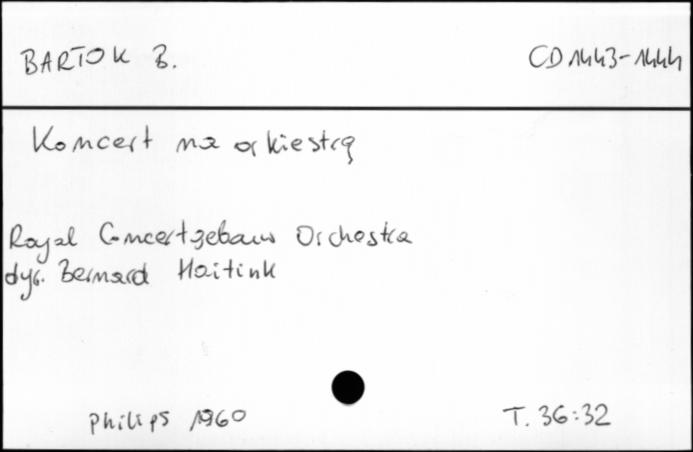 BARTOK B. CD 1443-1444
Koncert na orkiestrę
Royal Concertgebauw Orchestra
dyr. Bernard Haitink
Philips 1960 T. 36:32